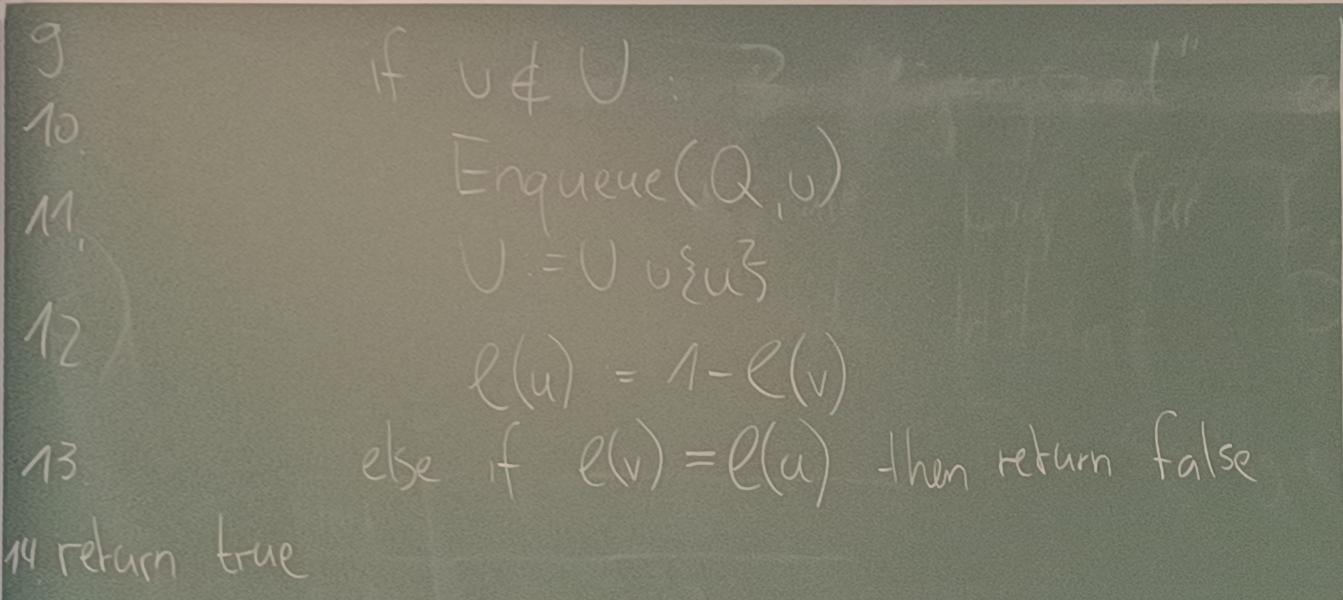 9 if u ∉ U :
10. Enqueue(Q,u)
11. U := U ∪ {u}
12 l(u) = 1-l(v)
13. else if l(v) = l(u) then return false
14 return true